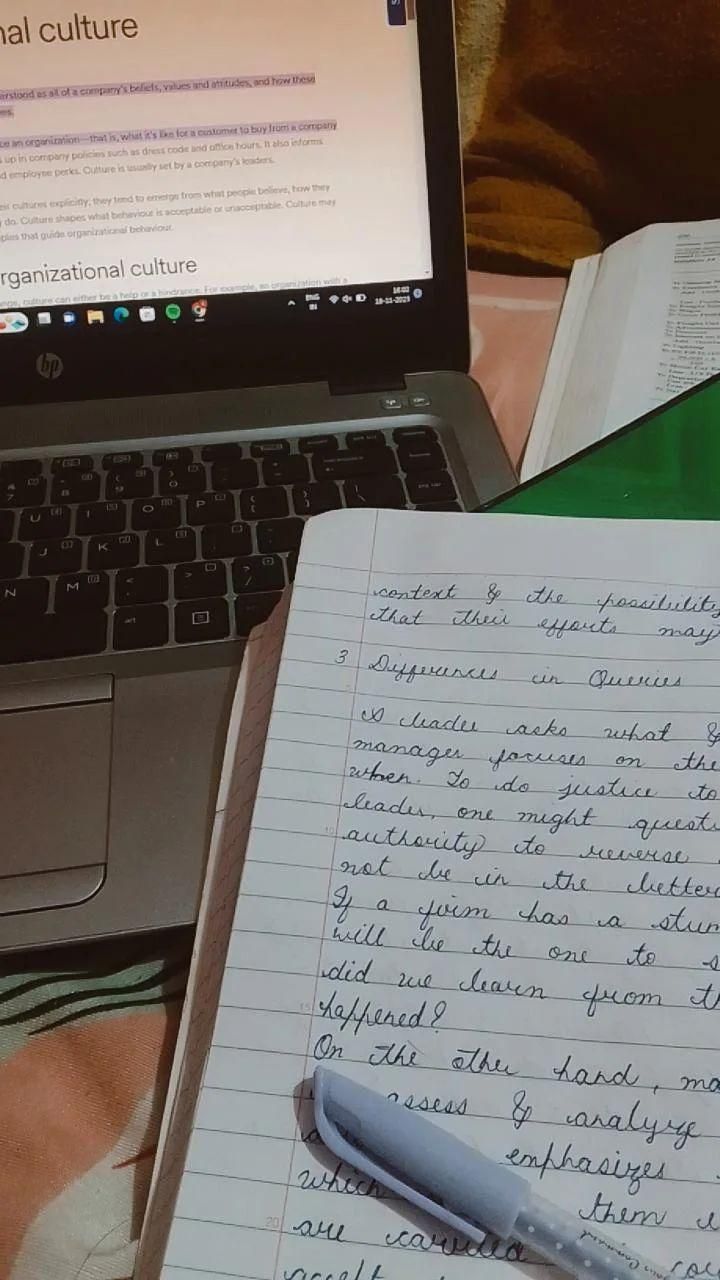 nal culture
erstood as all of a company's beliefs, values and attitudes, and how these
ce an organization—that is, what it's like for a customer to buy from a company
s up in company policies such as dress code and office hours. It also informs
d employee perks. Culture is usually set by a company's leaders.
eir cultures explicitly; they tend to emerge from what people believe, how they
y do. Culture shapes what behaviour is acceptable or unacceptable. Culture may
ples that guide organizational behaviour.
rganizational culture
ange, culture can either be a help or a hindrance. For example, an organization with a
ENG
IN
16:02
18-11-2023
hp
7
8
9
0
U
I
O
P
J
K
L
N
M
context & the possibility
that their efforts may
3 Differences in Queries
A leader asks what &
manager focuses on the
when. To do justice to
leader, one might questi
10 authority) to reverse
not be in the better
If a firm has a stum
will be the one to s
did we learn from th
15 happened?
On the other hand, ma
assess & analyze
emphasizes
which them
20 are carried